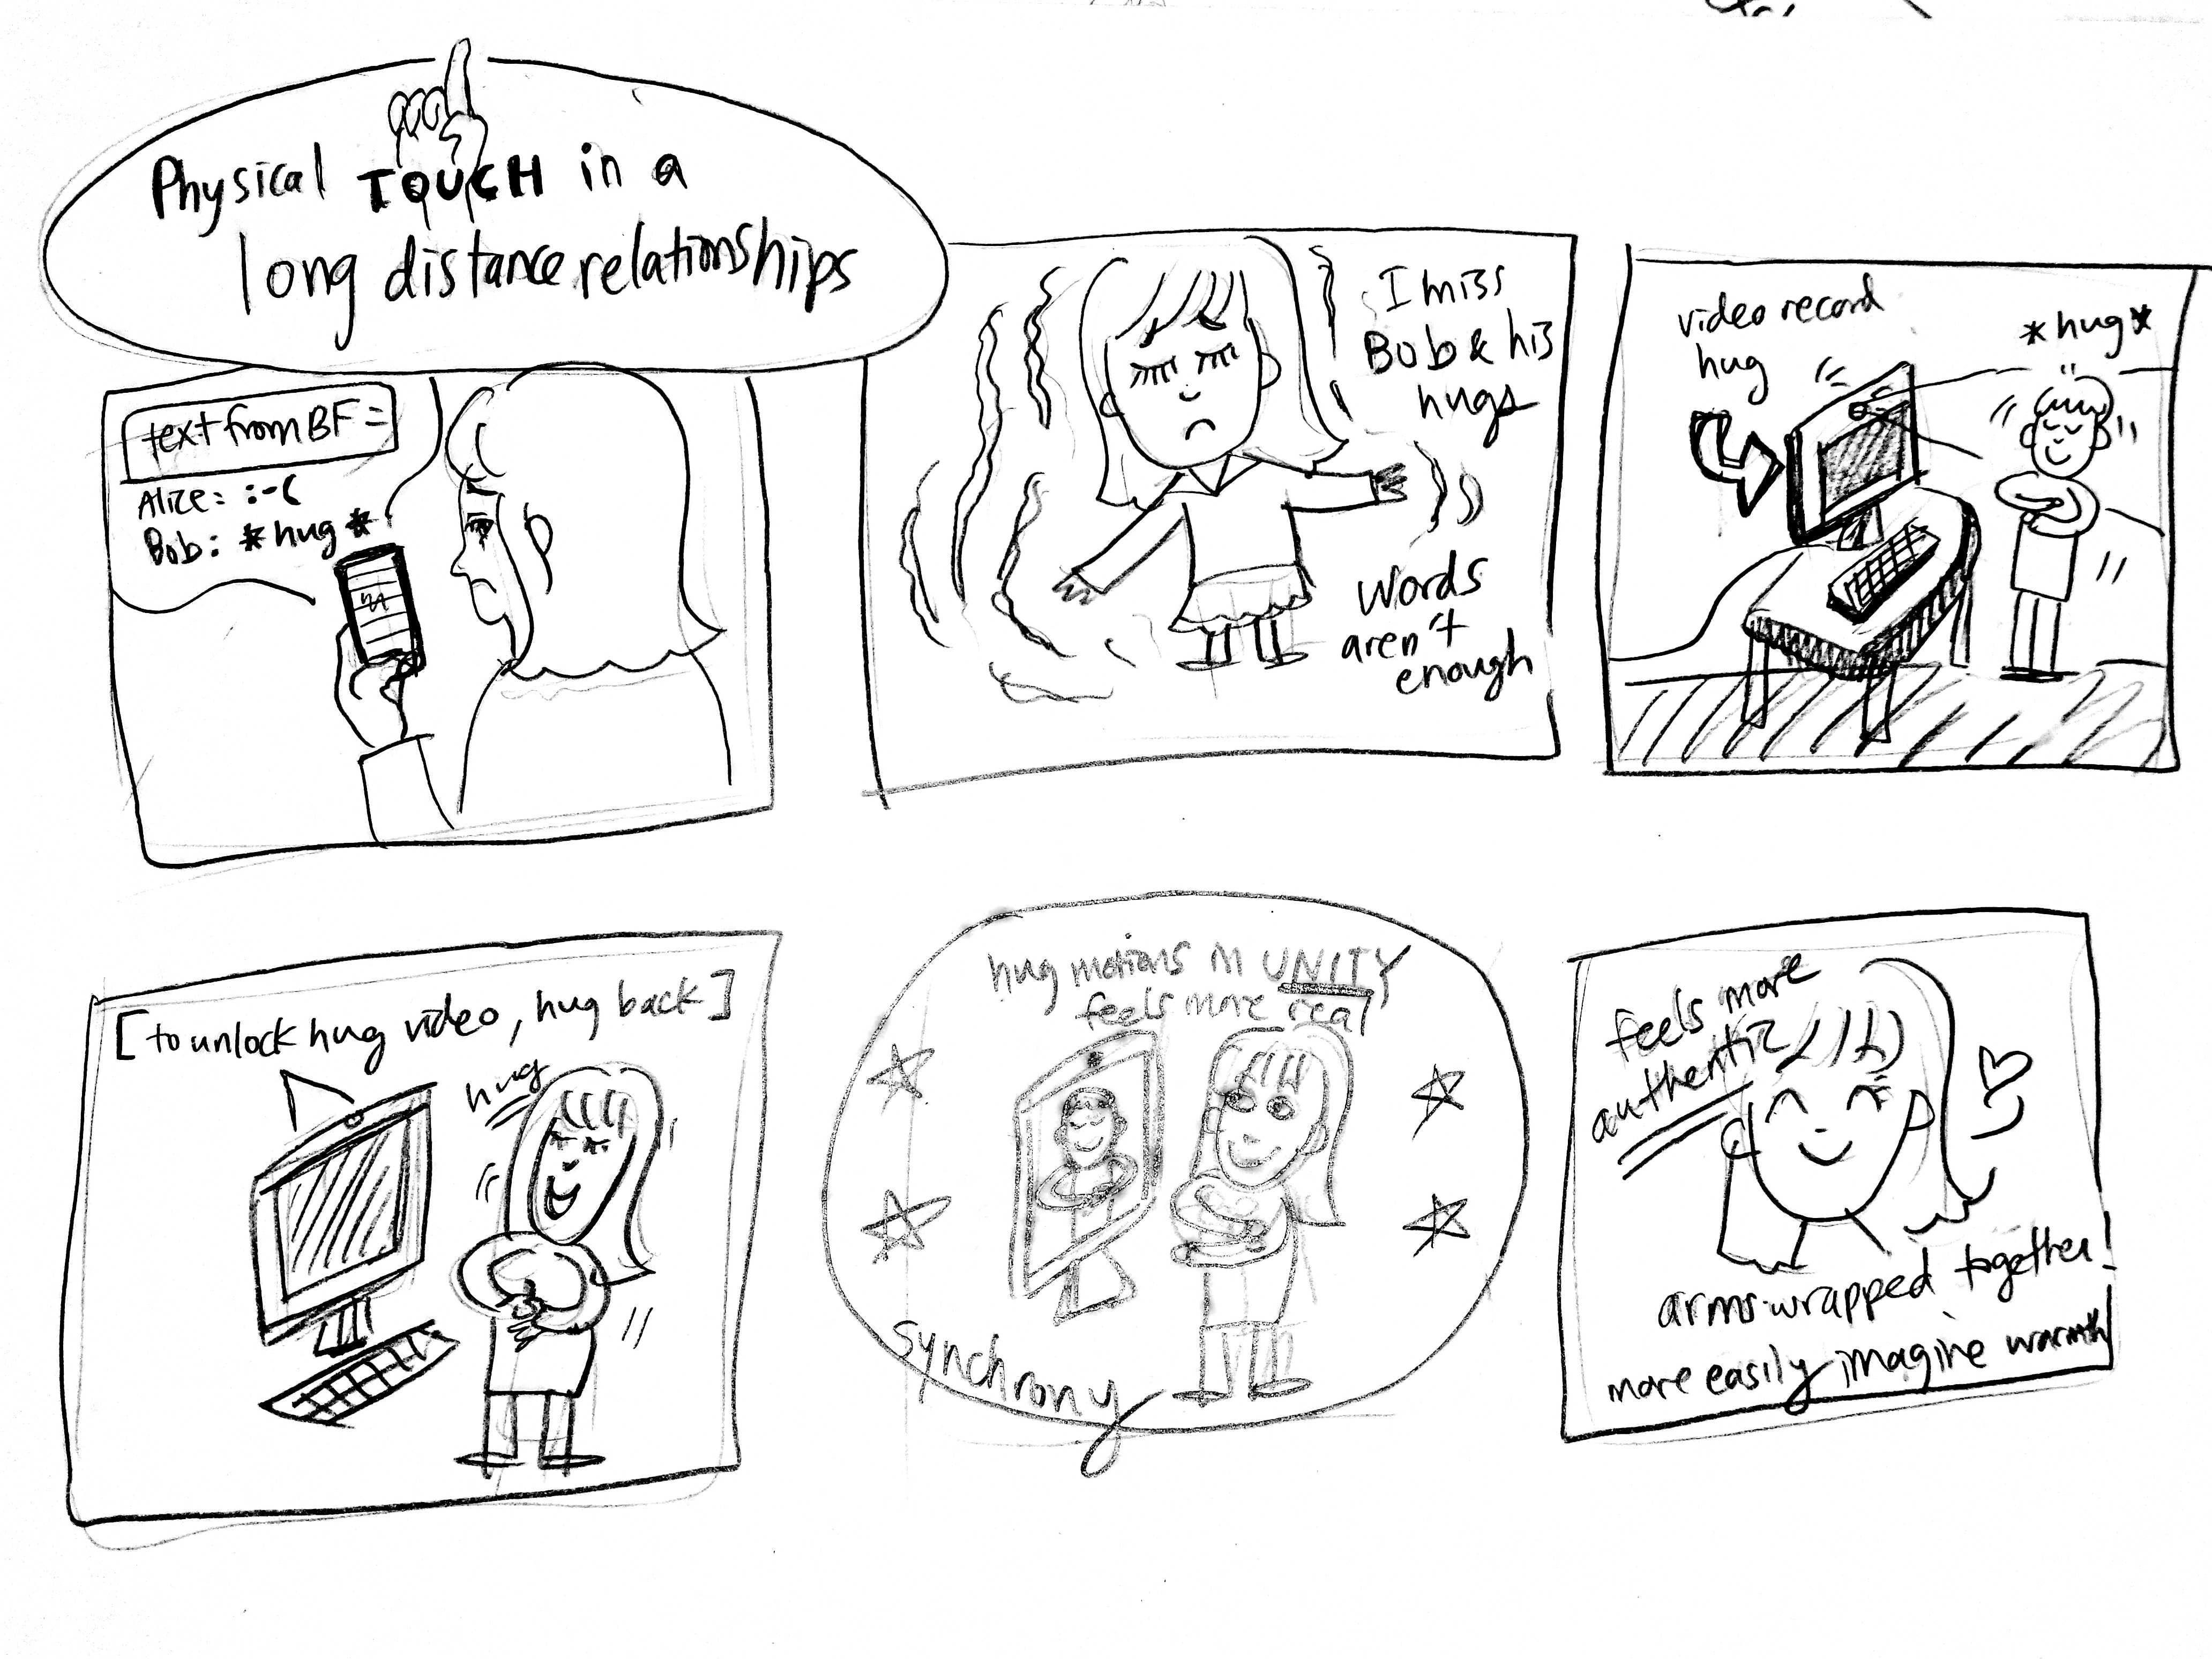 Physical TOUCH in a
long distance relationships
text from BF =
Alice: :-(
Bob: *hug*
I miss
Bob & his
hugs
words
aren't
enough
video record
hug
*hug*
[to unlock hug video, hug back]
hug
hug motions in UNITY
feels more real
synchrony
feels more
authentic
arms wrapped together!
more easily imagine warmth!